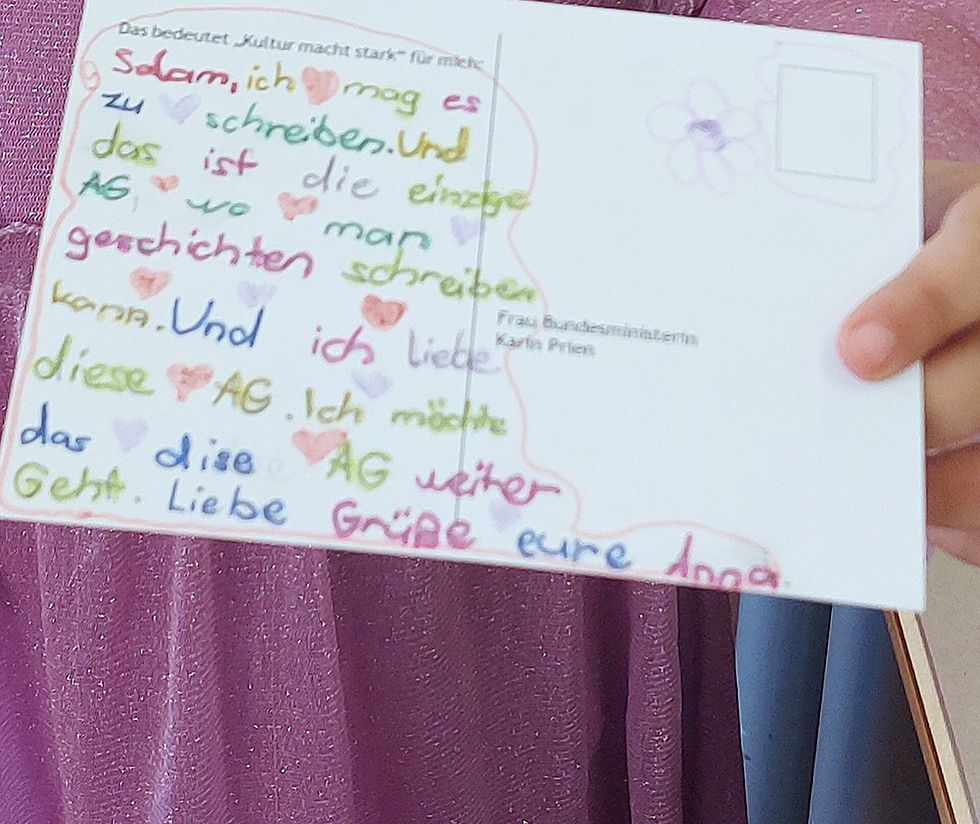 Das bedeutet „Kultur macht stark“ für mich:
Salam, ich mag es
zu schreiben. Und
das ist die einzige
AG, wo man
geschichten schreiben
kann. Und ich liebe
diese AG. Ich möchte
das dise AG weiter
Geht. Liebe Grüße eure Anna.
Frau Bundesministerin
Karin Prien